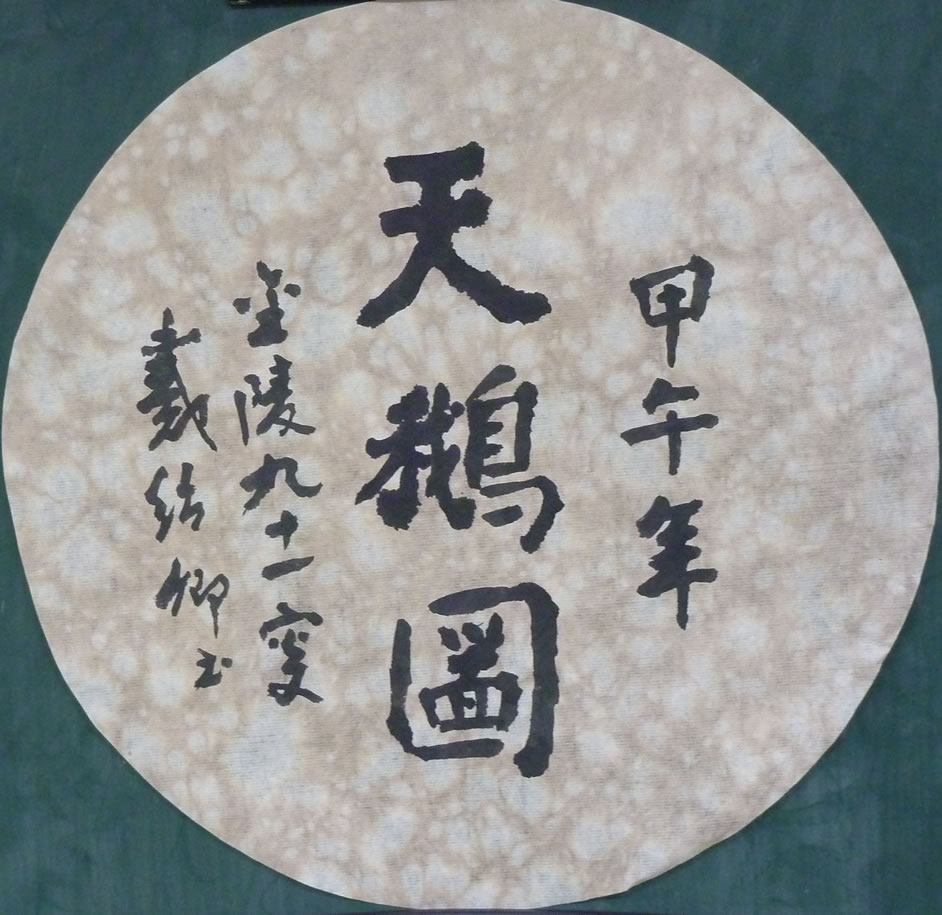 甲午年
天鵝圖
金陵九十一叟
戴结卿书